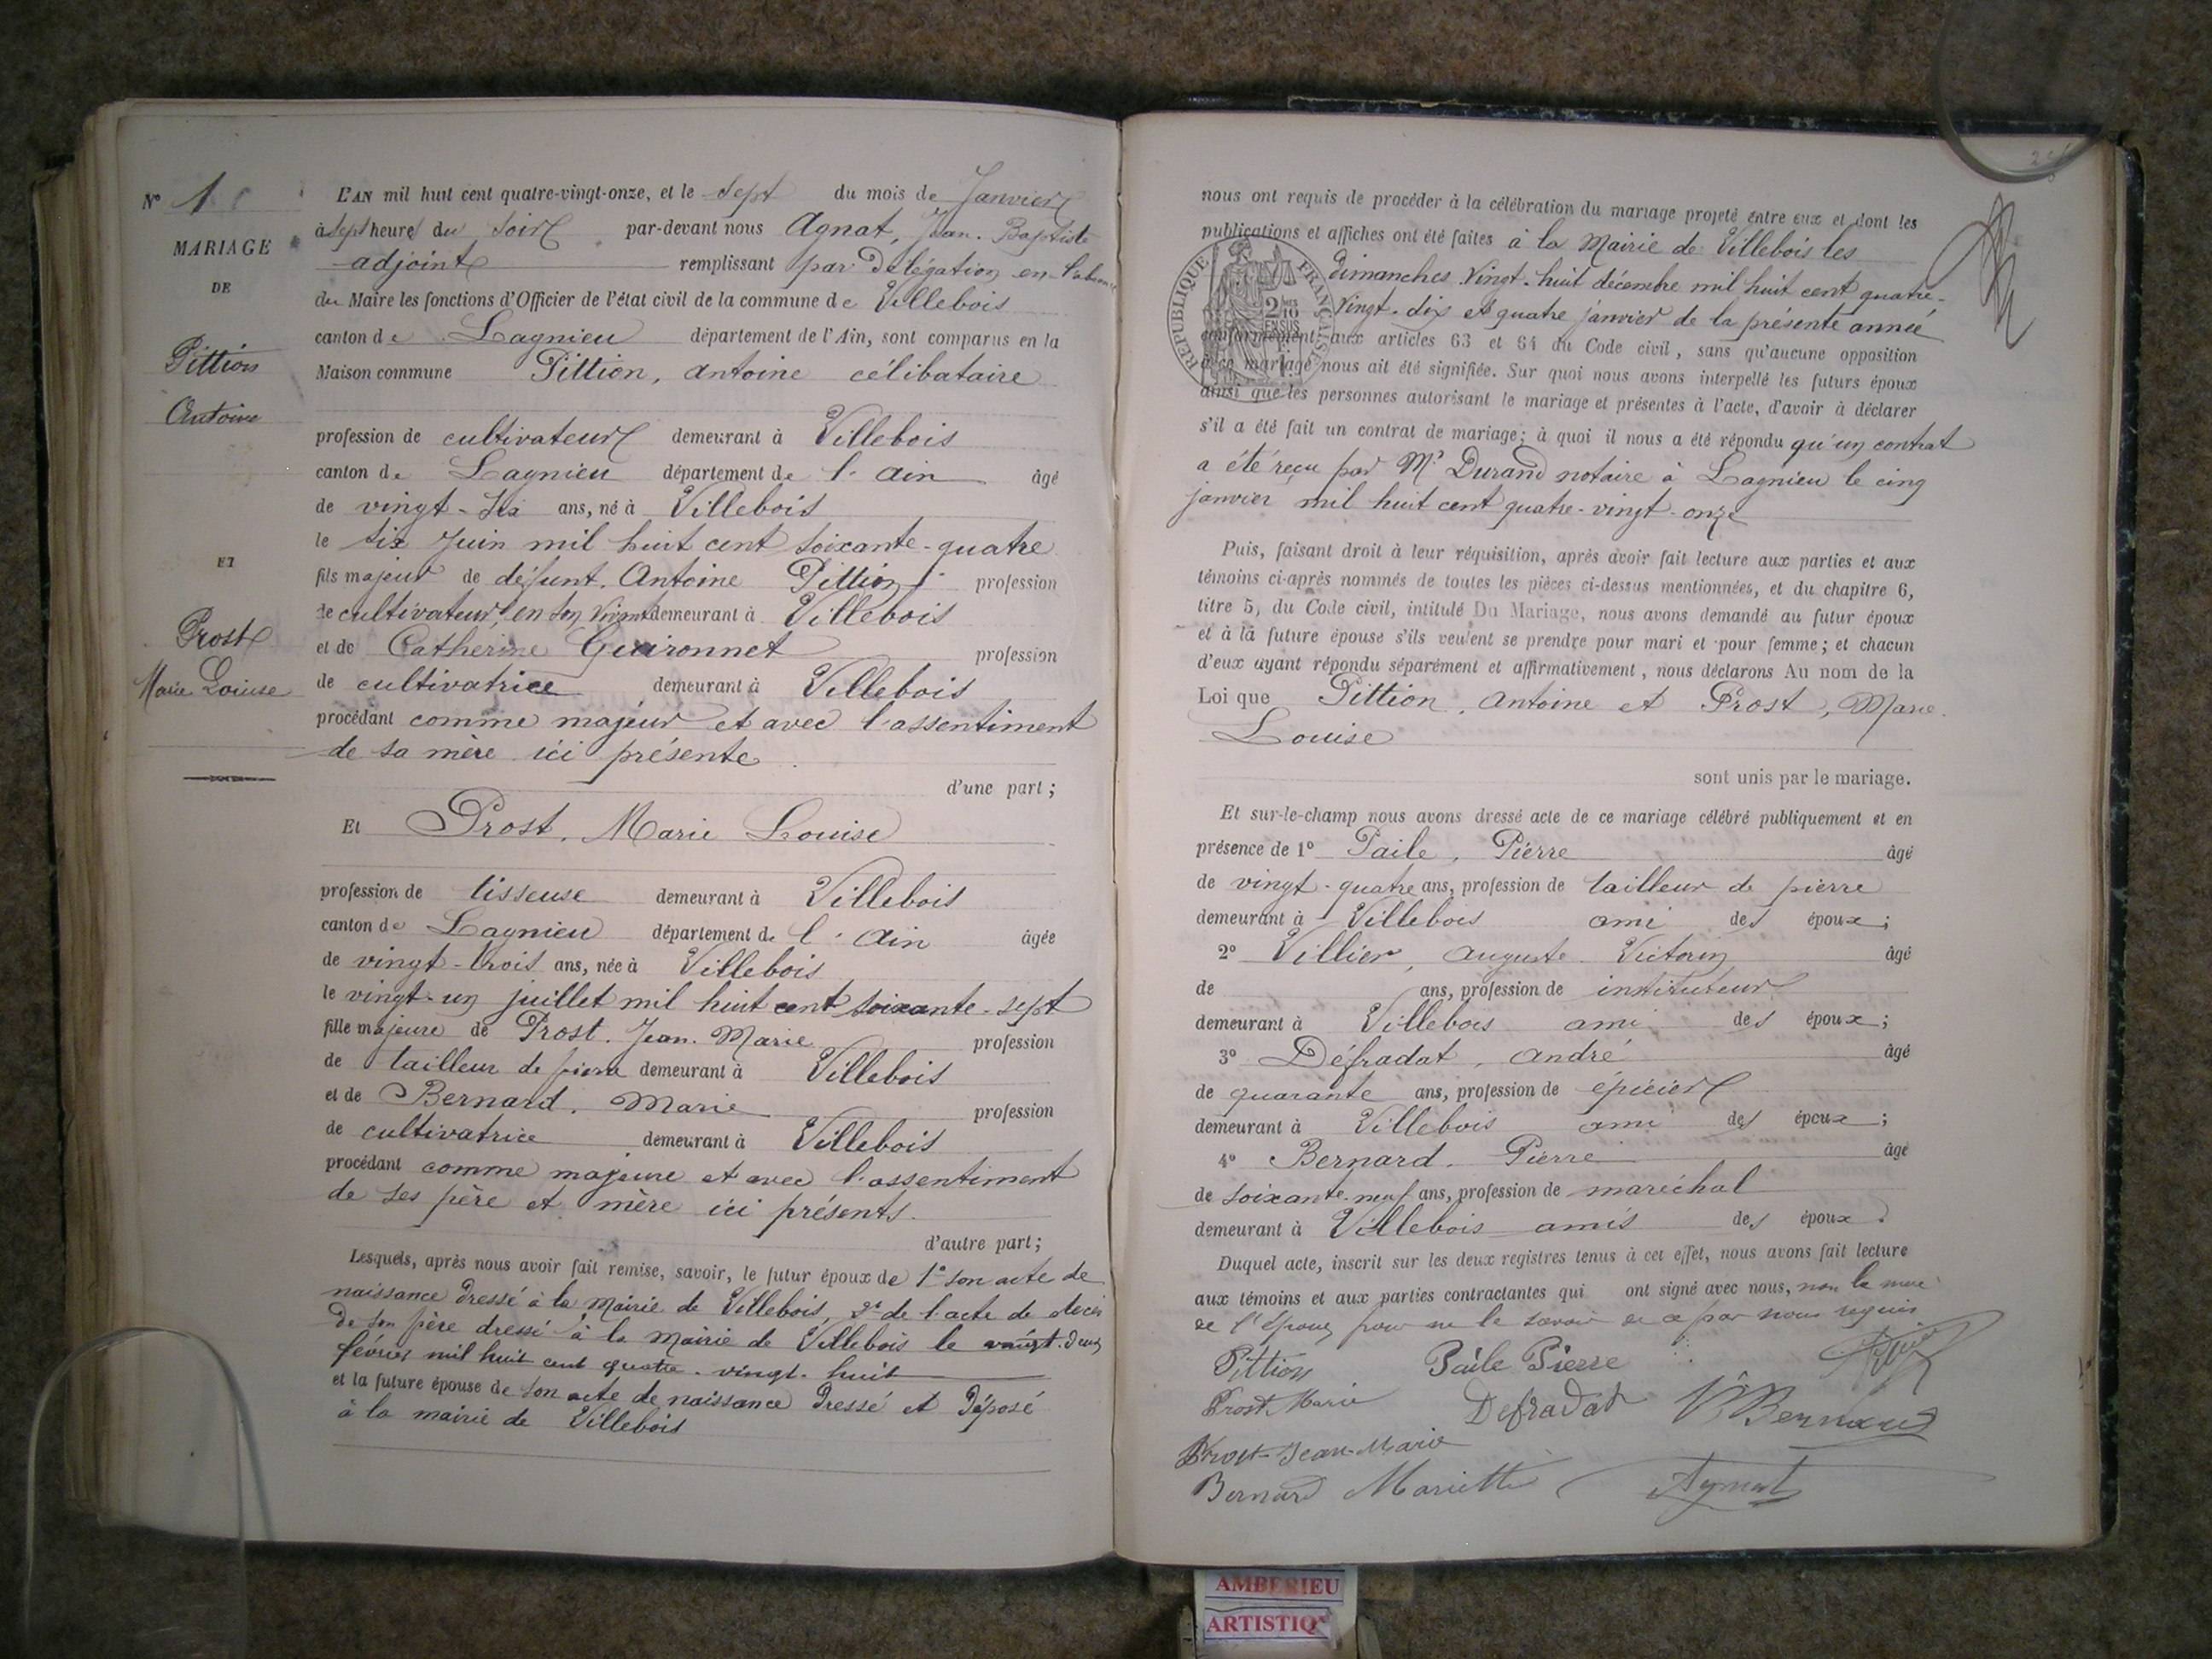 N° 1
MARIAGE
DE
Pittion
Antoine
ET
Prost
Marie Louise
L'AN mil huit cent quatre-vingt-onze, et le sept du mois de Janvier
à sept heures du soir par-devant nous Agnat, Jean-Baptiste
adjoint remplissant par délégation en l'absence
du Maire les fonctions d'Officier de l'état civil de la commune de Villebois
canton de Lagnieu département de l'Ain, sont comparus en la
Maison commune Pittion, Antoine célibataire
profession de cultivateur demeurant à Villebois
canton de Lagnieu département de l'Ain âgé
de vingt-six ans, né à Villebois
le six Juin mil huit cent soixante-quatre
fils majeur de défunt Antoine Pittion profession
de cultivateur, en son vivant demeurant à Villebois
et de Catherine Guironnet profession
de cultivatrice demeurant à Villebois
procédant comme majeur et avec l'assentiment
de sa mère ici présente
d'une part ;
Et Prost, Marie Louise
profession de tisseuse demeurant à Villebois
canton de Lagnieu département de l'Ain âgée
de vingt-trois ans, née à Villebois
le vingt-un juillet mil huit cent soixante-sept
fille majeure de Prost, Jean-Marie profession
de tailleur de pierre demeurant à Villebois
et de Bernard, Marie profession
de cultivatrice demeurant à Villebois
procédant comme majeure et avec l'assentiment
de ses père et mère ici présents.
d'autre part ;
Lesquels, après nous avoir fait remise, savoir, le futur époux de 1° son acte de
naissance dressé à la Mairie de Villebois, 2° de l'acte de décès
de son père dressé à la Mairie de Villebois le vingt-deux
février mil huit cent quatre-vingt-huit
et la future épouse de son acte de naissance dressé et déposé
à la mairie de Villebois
nous ont requis de procéder à la célébration du mariage projeté entre eux et dont les
publications et affiches ont été faites à la Mairie de Villebois les
dimanches vingt-huit décembre mil huit cent quatre-
vingt-dix et quatre janvier de la présente année
conformément aux articles 63 et 64 du Code civil, sans qu'aucune opposition
à ce mariage nous ait été signifiée. Sur quoi nous avons interpellé les futurs époux
ainsi que les personnes autorisant le mariage et présentes à l'acte, d'avoir à déclarer
s'il a été fait un contrat de mariage ; à quoi il nous a été répondu qu'un contrat
a été reçu par Me Durand notaire à Lagnieu le cinq
janvier mil huit cent quatre-vingt-onze
RÉPUBLIQUE FRANÇAISE
2/10 EN SUS
Puis, faisant droit à leur réquisition, après avoir fait lecture aux parties et aux
témoins ci-après nommés de toutes les pièces ci-dessus mentionnées, et du chapitre 6,
titre 5, du Code civil, intitulé Du Mariage, nous avons demandé au futur époux
et à la future épouse s'ils veulent se prendre pour mari et pour femme ; et chacun
d'eux ayant répondu séparément et affirmativement, nous déclarons Au nom de la
Loi que Pittion, Antoine et Prost, Marie
Louise
sont unis par le mariage.
Et sur-le-champ nous avons dressé acte de ce mariage célébré publiquement et en
présence de 1° Paile, Pierre âgé
de vingt-quatre ans, profession de tailleur de pierre
demeurant à Villebois ami des époux ;
2° Villier, Auguste Victorin âgé
de ans, profession de instituteur
demeurant à Villebois ami des époux ;
3° Défradat, André âgé
de quarante ans, profession de épicier
demeurant à Villebois ami des époux ;
4° Bernard, Pierre âgé
de soixante-neuf ans, profession de maréchal
demeurant à Villebois amis des époux.
Duquel acte, inscrit sur les deux registres tenus à cet effet, nous avons fait lecture
aux témoins et aux parties contractantes qui ont signé avec nous, non la mère
de l'époux pour ne le savoir de ce par nous requis
Pittion Paile Pierre
Prost Marie Defradat Bernard
Prost Jean-Marie
Bernard Mariette Agnat
AMBERIEU
ARTISTIQ